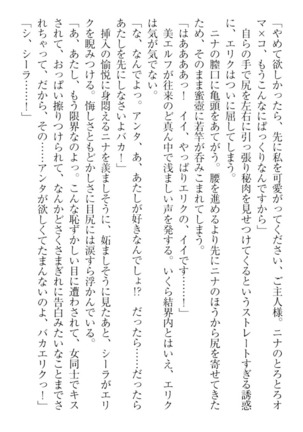 「やめて欲しかったら、先に私を可愛がってください、ご主人様。ニナのとろとろオ
マ×コ、もうこんなにぱっくりなんですから」
　自らの手で尻を左右に引っ張り秘肉を見せつけてくるというストレートすぎる誘惑
に、エリクはついに屈してしまう。
　ニナの膣口に亀頭をあてがう。腰を進めるより先にニナのほうから尻を寄せてきた
ため、そのまま蜜壺に若竿が呑みこまれてしまう。
「はああああっ！　イイ、やっぱりエリクの、イイですう……！」
　美エルフが往来のど真ん中で浅ましい声を発する。いくら結界内とはいえ、エリク
は気が気でない。
「な、なんでよっ。アンタ、あ、あたしが好きなんでしょ!?　だったら……だったら
あたしを先にしなさいよバカ！」
　挿入の愉悦に身悶えるニナを羨ましそうに、妬ましそうに見たあと、シーラがエリ
クを睨みつける。悔しさともどかしさに目尻には涙すら浮かんでいる。
「あ、あたし、もう限界なのよっ。こんな恥ずかしい目に遭わされて、女同士でキス
されて、おっぱい擦りつけられて、なんかどさくさまぎれに告白みたいなことまでさ
れちゃって、だから、その……アンタが欲しくてたまんないのよ、バカエリクっ！」
「シ、シーラ……！」